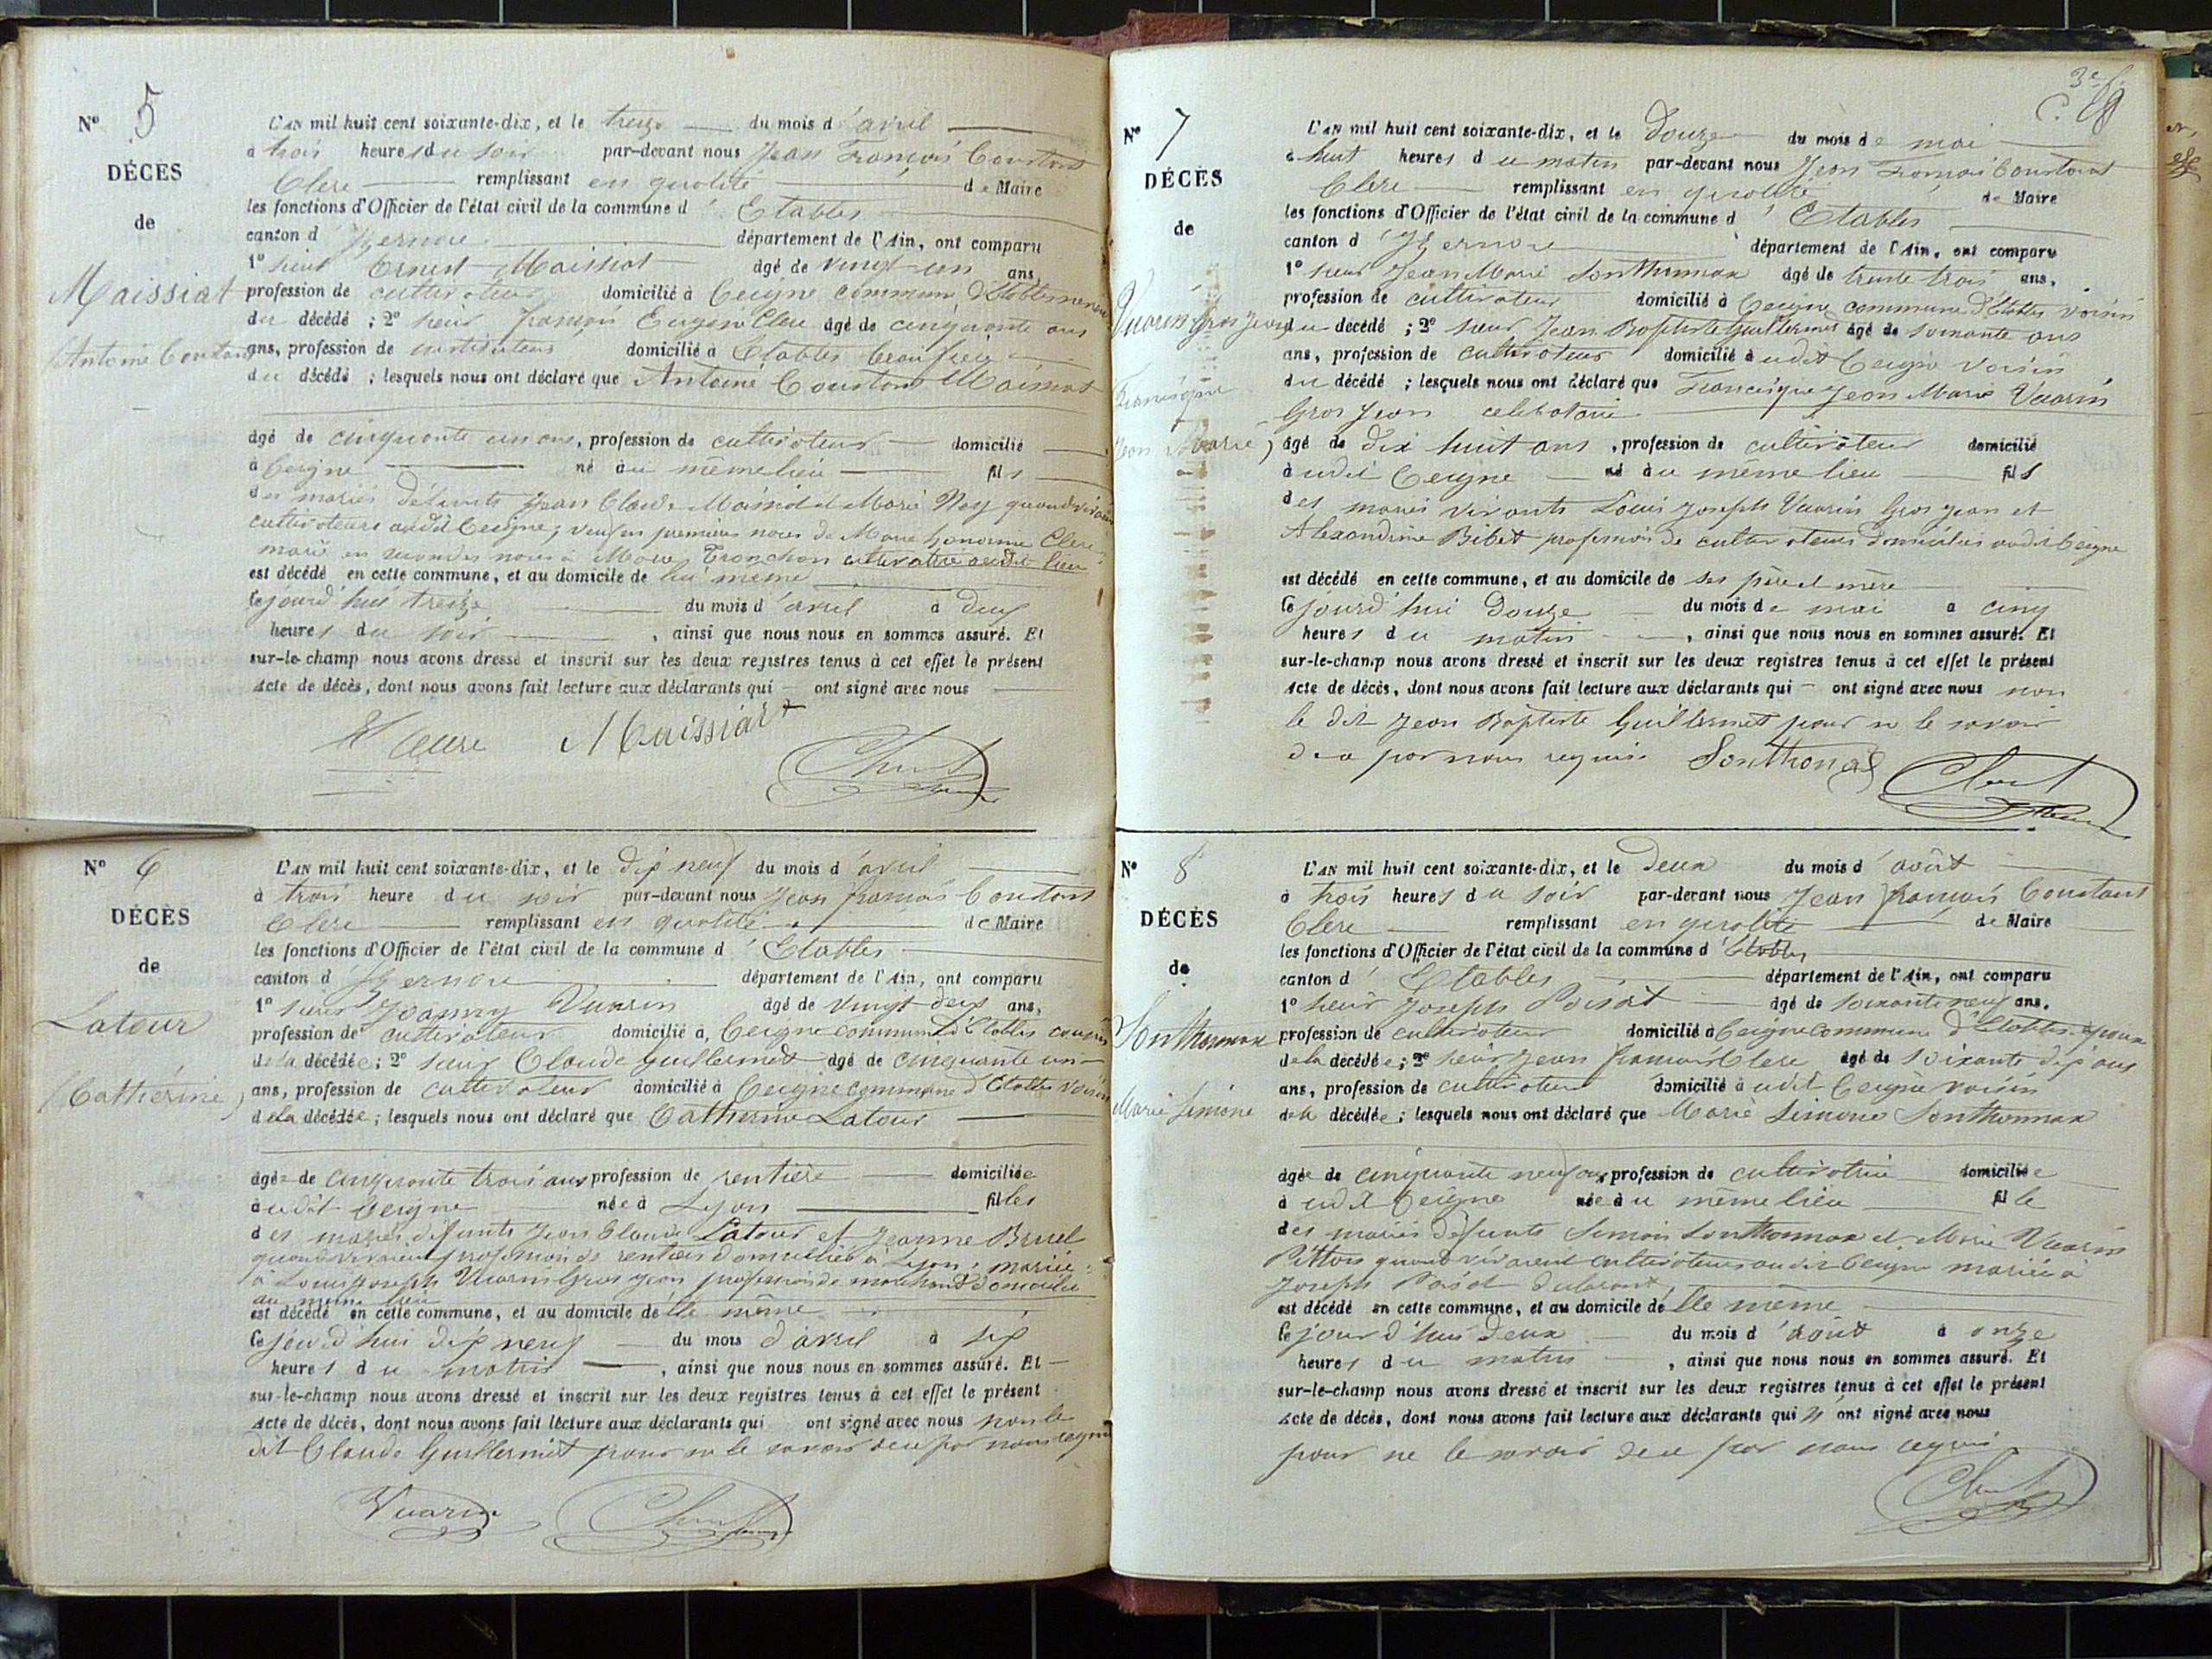 N° 5
DÉCÈS
de
Maissiat
Antoine Constant
L'AN mil huit cent soixante-dix, et le treize du mois d'avril
à trois heures du soir par-devant nous Jean François Constant
Clerc remplissant en qualité de Maire
les fonctions d'Officier de l'état civil de la commune d'Etables
canton d'Izernore département de l'Ain, ont comparu
1° sieur Ernest Maissiat âgé de vingt un ans,
profession de cultivateur domicilié à Ceigne commune d'Etables
du décédé ; 2° sieur François Eugène Clerc âgé de cinquante ans
ans, profession de instituteur domicilié à Etables beaufrère
du décédé ; lesquels nous ont déclaré que Antoine Constant Maissiat
âgé de cinquante un ans, profession de cultivateur domicilié
à Ceigne né au même lieu fils
des mariés défunts Jean Claude Maissiat et Marie Nay quand vivaient
cultivateurs audit Ceigne, veuf en premières noces de Marie Honorine Clerc
marié en secondes noces à Marie Tronchon cultivatrice audit lieu
est décédé en cette commune, et au domicile de lui même
cejourd'hui treize du mois d'avril à deux
heures du soir, ainsi que nous nous en sommes assuré. Et
sur-le-champ nous avons dressé et inscrit sur les deux registres tenus à cet effet le présent
Acte de décès, dont nous avons fait lecture aux déclarants qui ont signé avec nous
Clerc Maissiat Clerc
N° 6
DÉCÈS
de
Latour
(Catherine)
L'AN mil huit cent soixante-dix, et le dix neuf du mois d'avril
à trois heure du soir par-devant nous Jean françois Constant
Clerc remplissant en qualité de Maire
les fonctions d'Officier de l'état civil de la commune d'Etables
canton d'Izernore département de l'Ain, ont comparu
1° sieur Joanny Vuarin âgé de vingt deux ans,
profession de cultivateur domicilié à Ceigne commune d'Etables cousin
de la décédée ; 2° sieur Claude Guillermet âgé de cinquante un
ans, profession de cultivateur domicilié à Ceigne commune d'Etables voisin
de la décédée ; lesquels nous ont déclaré que Catherine Latour
âgée de cinquante trois ans profession de rentière domiciliée
audit Ceigne née à Lyon fille
des mariés défunts Jean Claude Latour et Jeanne Bruel
quand vivaient profession de rentiers domiciliés à Lyon, mariée
à Louis Joseph Vuarin Gros Jean profession de marchand domicilié
au même lieu
est décédé en cette commune, et au domicile de elle même
cejourd'hui dix neuf du mois d'avril à six
heures du matin, ainsi que nous nous en sommes assuré. Et
sur-le-champ nous avons dressé et inscrit sur les deux registres tenus à cet effet le présent
Acte de décès, dont nous avons fait lecture aux déclarants qui ont signé avec nous non le
dit Claude Guillermet pour ne le savoir de ce par nous requis
Vuarin Clerc
3e f.
N° 7
DÉCÈS
de
Vuarin Gros Jean
(Francisque
Jean Marie)
L'AN mil huit cent soixante-dix, et le Douze du mois de mai
à huit heures du matin par-devant nous Jean François Constant
Clerc remplissant en qualité de Maire
les fonctions d'Officier de l'état civil de la commune d'Etables
canton d'Izernore département de l'Ain, ont comparu
1° sieur Jean Marie Sonthonnax âgé de trente trois ans,
profession de cultivateur domicilié à Ceigne commune d'Etables voisin
du décédé ; 2° sieur Jean Baptiste Guillermet âgé de soixante ans
ans, profession de cultivateur domicilié audit Ceigne voisin
du décédé ; lesquels nous ont déclaré que Francisque Jean Marie Vuarin
Gros Jean célibataire
âgé de dix huit ans, profession de cultivateur domicilié
audit Ceigne né au même lieu fils
des mariés vivants Louis Joseph Vuarin Gros Jean et
Alexandrine Bibet profession de cultivateurs domiciliés audit Ceigne
est décédé en cette commune, et au domicile de ses père et mère
cejourd'hui Douze du mois de mai à cinq
heures du matin, ainsi que nous nous en sommes assuré. Et
sur-le-champ nous avons dressé et inscrit sur les deux registres tenus à cet effet le présent
Acte de décès, dont nous avons fait lecture aux déclarants qui ont signé avec nous non
le dit Jean Baptiste Guillermet pour ne le savoir
de ce par nous requis. Sonthonax Clerc
N° 8
DÉCÈS
de
Sonthonnax
Marie Simone
L'AN mil huit cent soixante-dix, et le Deux du mois d'août
à trois heures du soir par-devant nous Jean François Constant
Clerc remplissant en qualité de Maire
les fonctions d'Officier de l'état civil de la commune d'Etables
canton d'Etables département de l'Ain, ont comparu
1° sieur Joseph Poisat âgé de soixante neuf ans,
profession de cultivateur domicilié à Ceigne commune d'Etables, époux
de la décédée ; 2° sieur Jean François Clerc âgé de soixante dix ans
ans, profession de cultivateur domicilié audit Ceigne voisin
de la décédée ; lesquels nous ont déclaré que Marie Simone Sonthonnax
âgée de cinquante neuf ans profession de cultivatrice domiciliée
audit Ceigne née au même lieu fille
des mariés défunts Simon Sonthonnax et Marie Vuarin
quand vivaient cultivateurs audit Ceigne mariée à
Joseph Poisat
est décédé en cette commune, et au domicile de elle même
cejourd'hui Deux du mois d'août à onze
heures du matin, ainsi que nous nous en sommes assuré. Et
sur-le-champ nous avons dressé et inscrit sur les deux registres tenus à cet effet le présent
Acte de décès, dont nous avons fait lecture aux déclarants qui n'ont signé avec nous
pour ne le savoir de ce par nous requis
Clerc